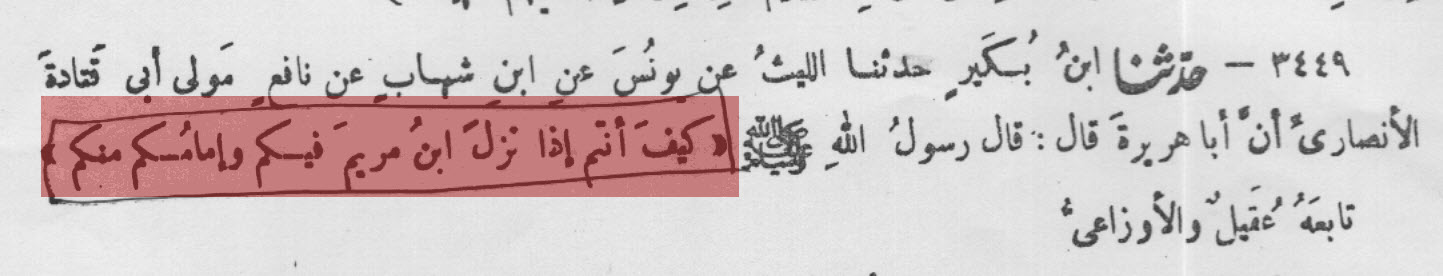 ٣٤٤٩ – حدّثنا ابنُ بُكَيرٍ حدثنا الليثُ عن يونُسَ عنِ ابنِ شهابٍ عن نافعٍ مَولى أبي قَتادةَ
الأنصاريِّ أنَّ أبا هريرةَ قال : قال رسولُ اللهِ ﷺ « كيفَ أنتم إذا نزلَ ابنُ مريمَ فيكم وإمامُكم منكم »
تابعَهُ عُقَيلٌ والأوزاعىُّ